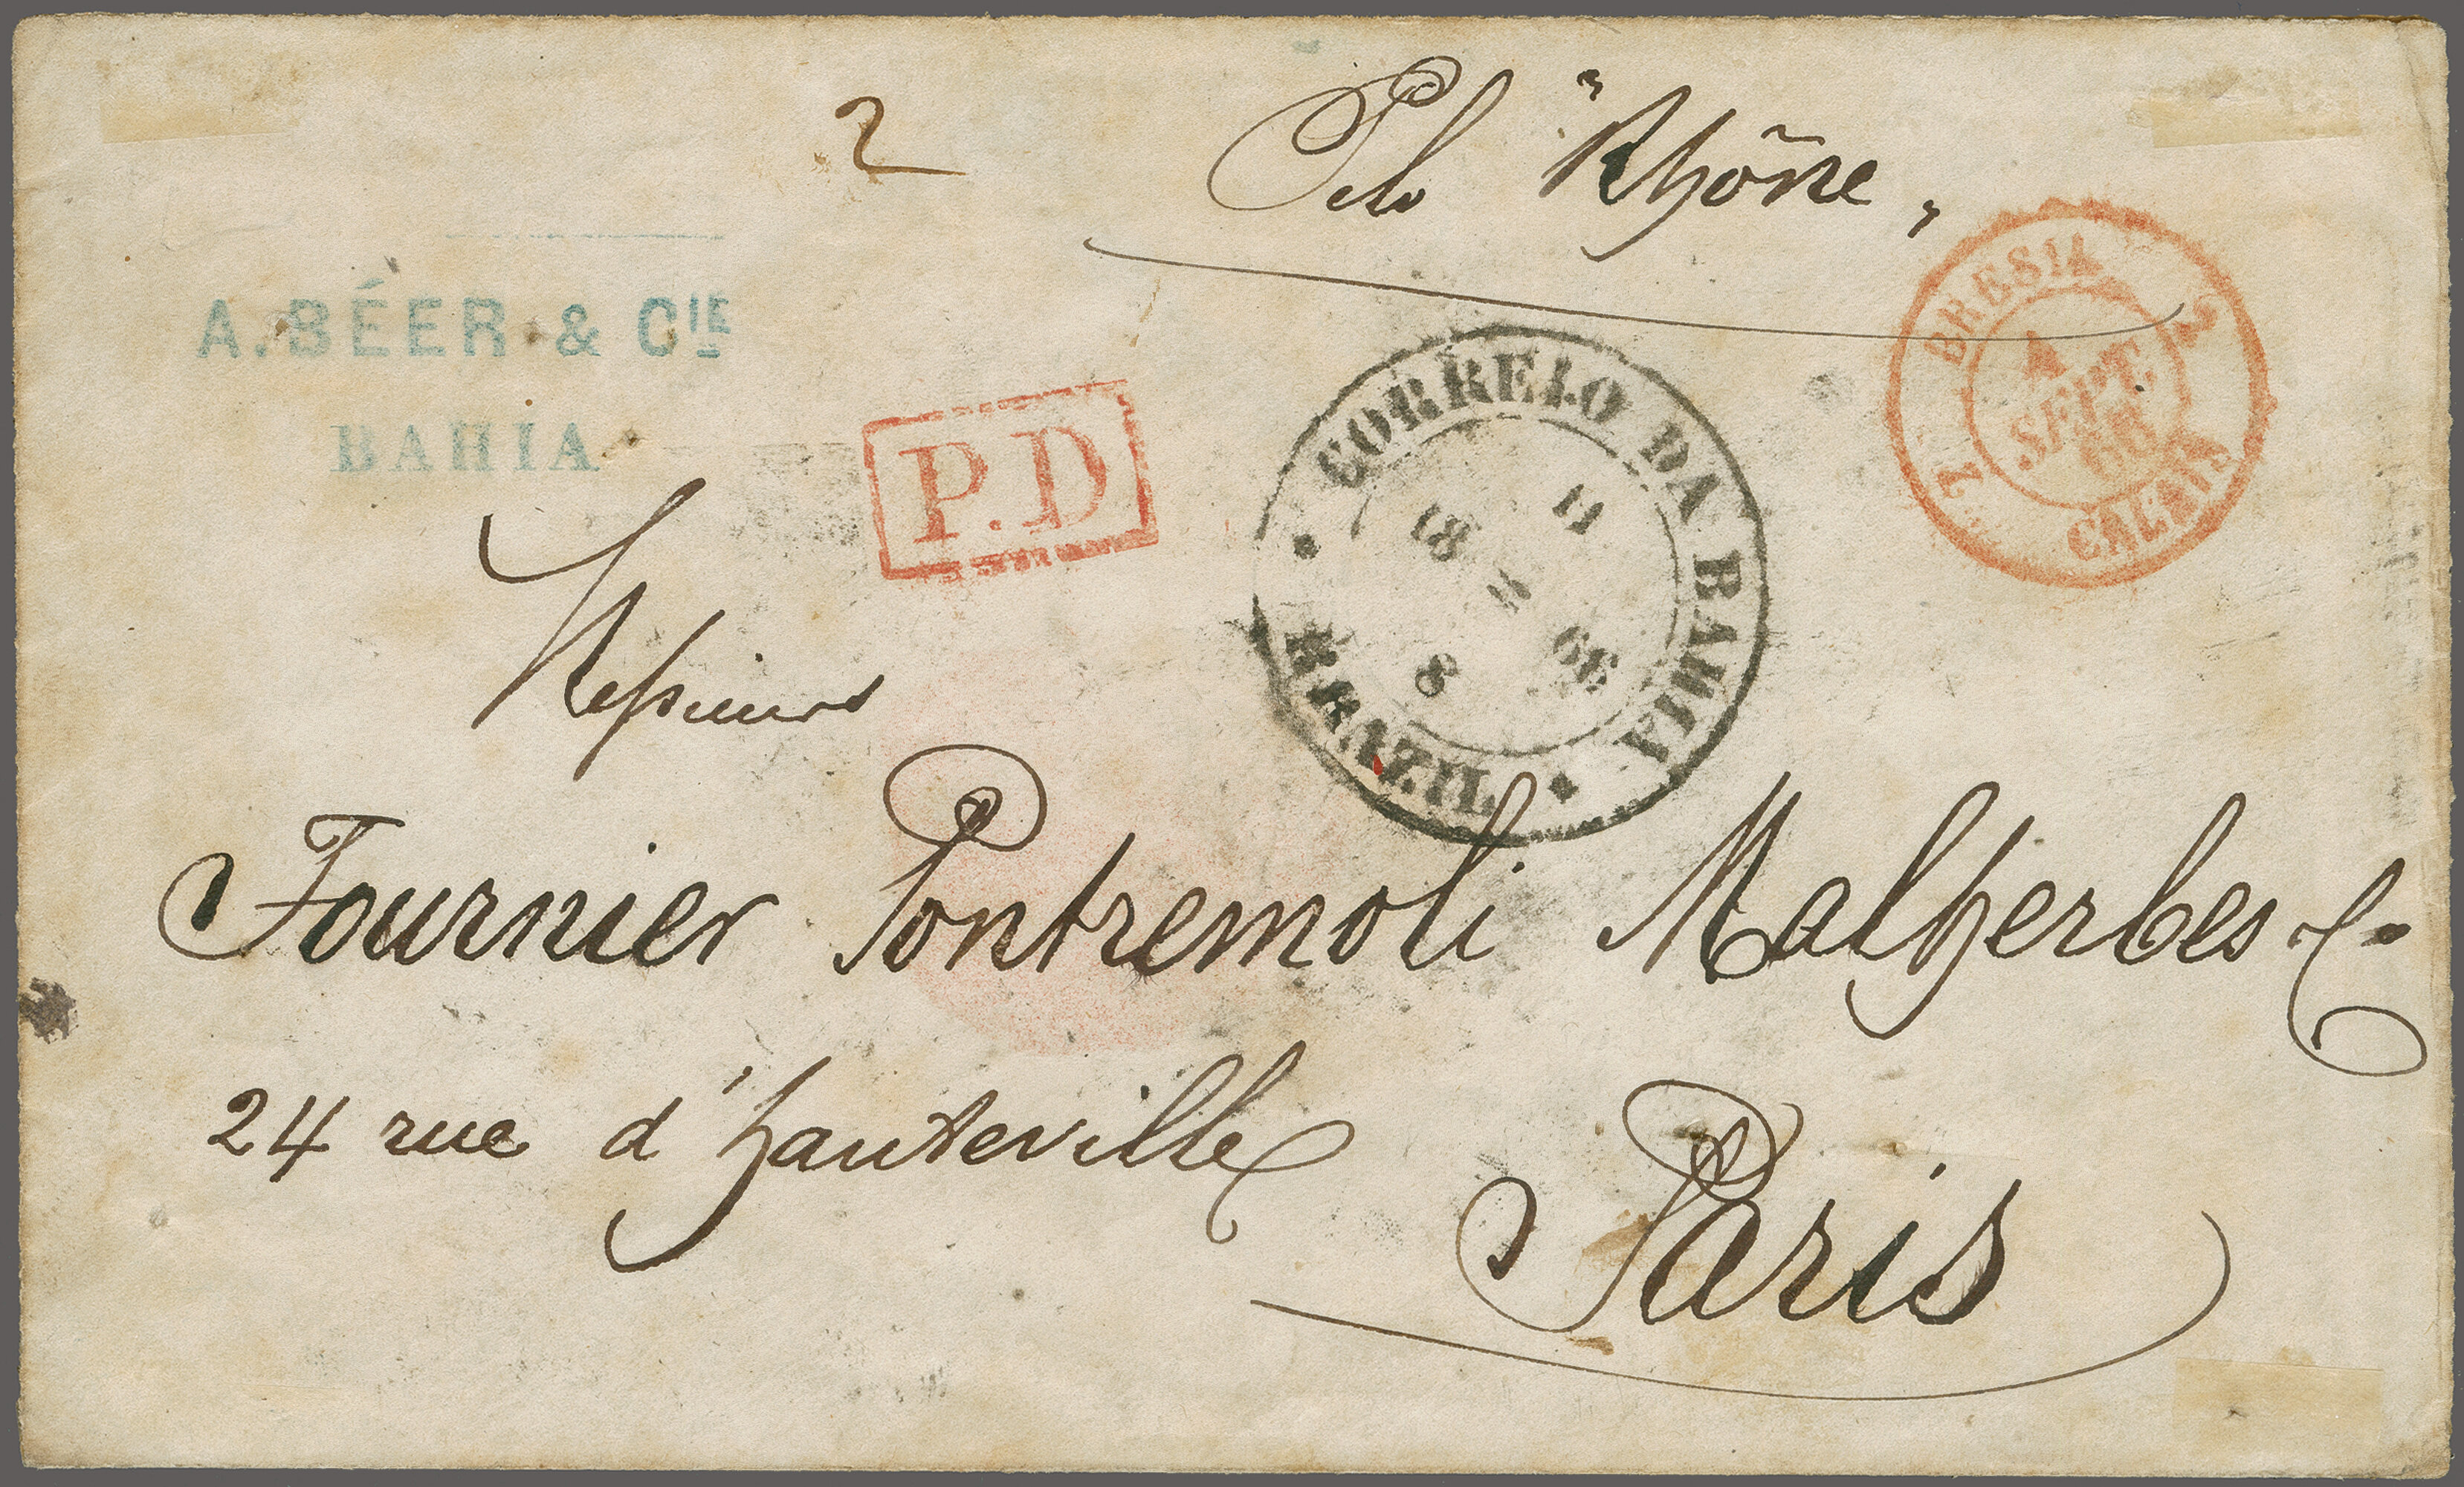 2
Pelo "Rhône"
A. BÉER & CIE
BAHIA
P.D
CORREIO DA BAHIA
BRAZIL
18 11
8 66
2 BRESIL 2
4
SEPT
66
CALAIS
Messieurs
Fournier Pontremoli Malherbes &c.
24 rue d'hauteville
Paris